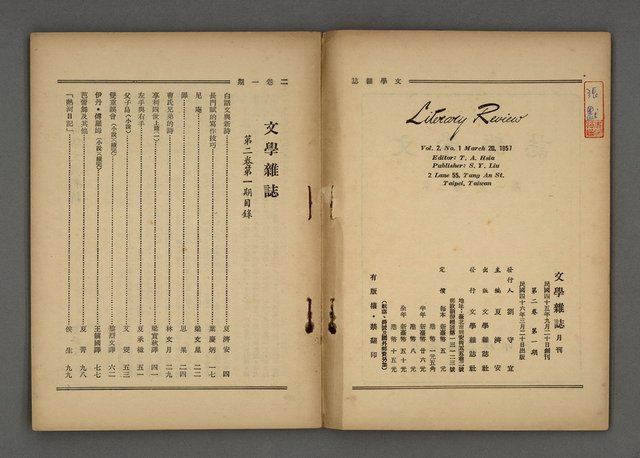 文學雜誌
Literary Review
Vol. 2, No. 1 March 20, 1957
Editor: T. A. Hsia
Publisher: S. Y. Liu
2 Lane 55, Tung An St.
Taipei, Taiwan
文學雜誌 月刊
第二卷 第一期
民國四十五年九月二十日創刊
民國四十六年三月二十日出版
發行人 劉守宜
主編 夏濟安
出版 文學雜誌社
發行 文學雜誌社
定價 每本 新臺幣 五元
港幣 一元五角
半年 新臺幣 廿六元
全年 新臺幣 五十元
港幣 十五元
有版權・禁翻印
二卷一期
文學雜誌
第二卷第一期目錄
白話文與新詩 夏濟安 四
長門賦的寫作技巧 葉慶炳 一七
尼庵 梁文星 二一
罪 思果 二四
曹氏兄弟的詩 林文月 二九
亨利四世上篇(二) 梁實秋譯 四一
左手與右手 夏承楹 五一
父子島(小說) 艾雯 五三
雙重誤會(小說)(續完) 黎烈文譯 六二
伊丹・傅羅姆(小說)(續完) 王鎮國譯 七七
芭蕾舞及其他 夏菁 九八
「熱河日記」 侯生 九九